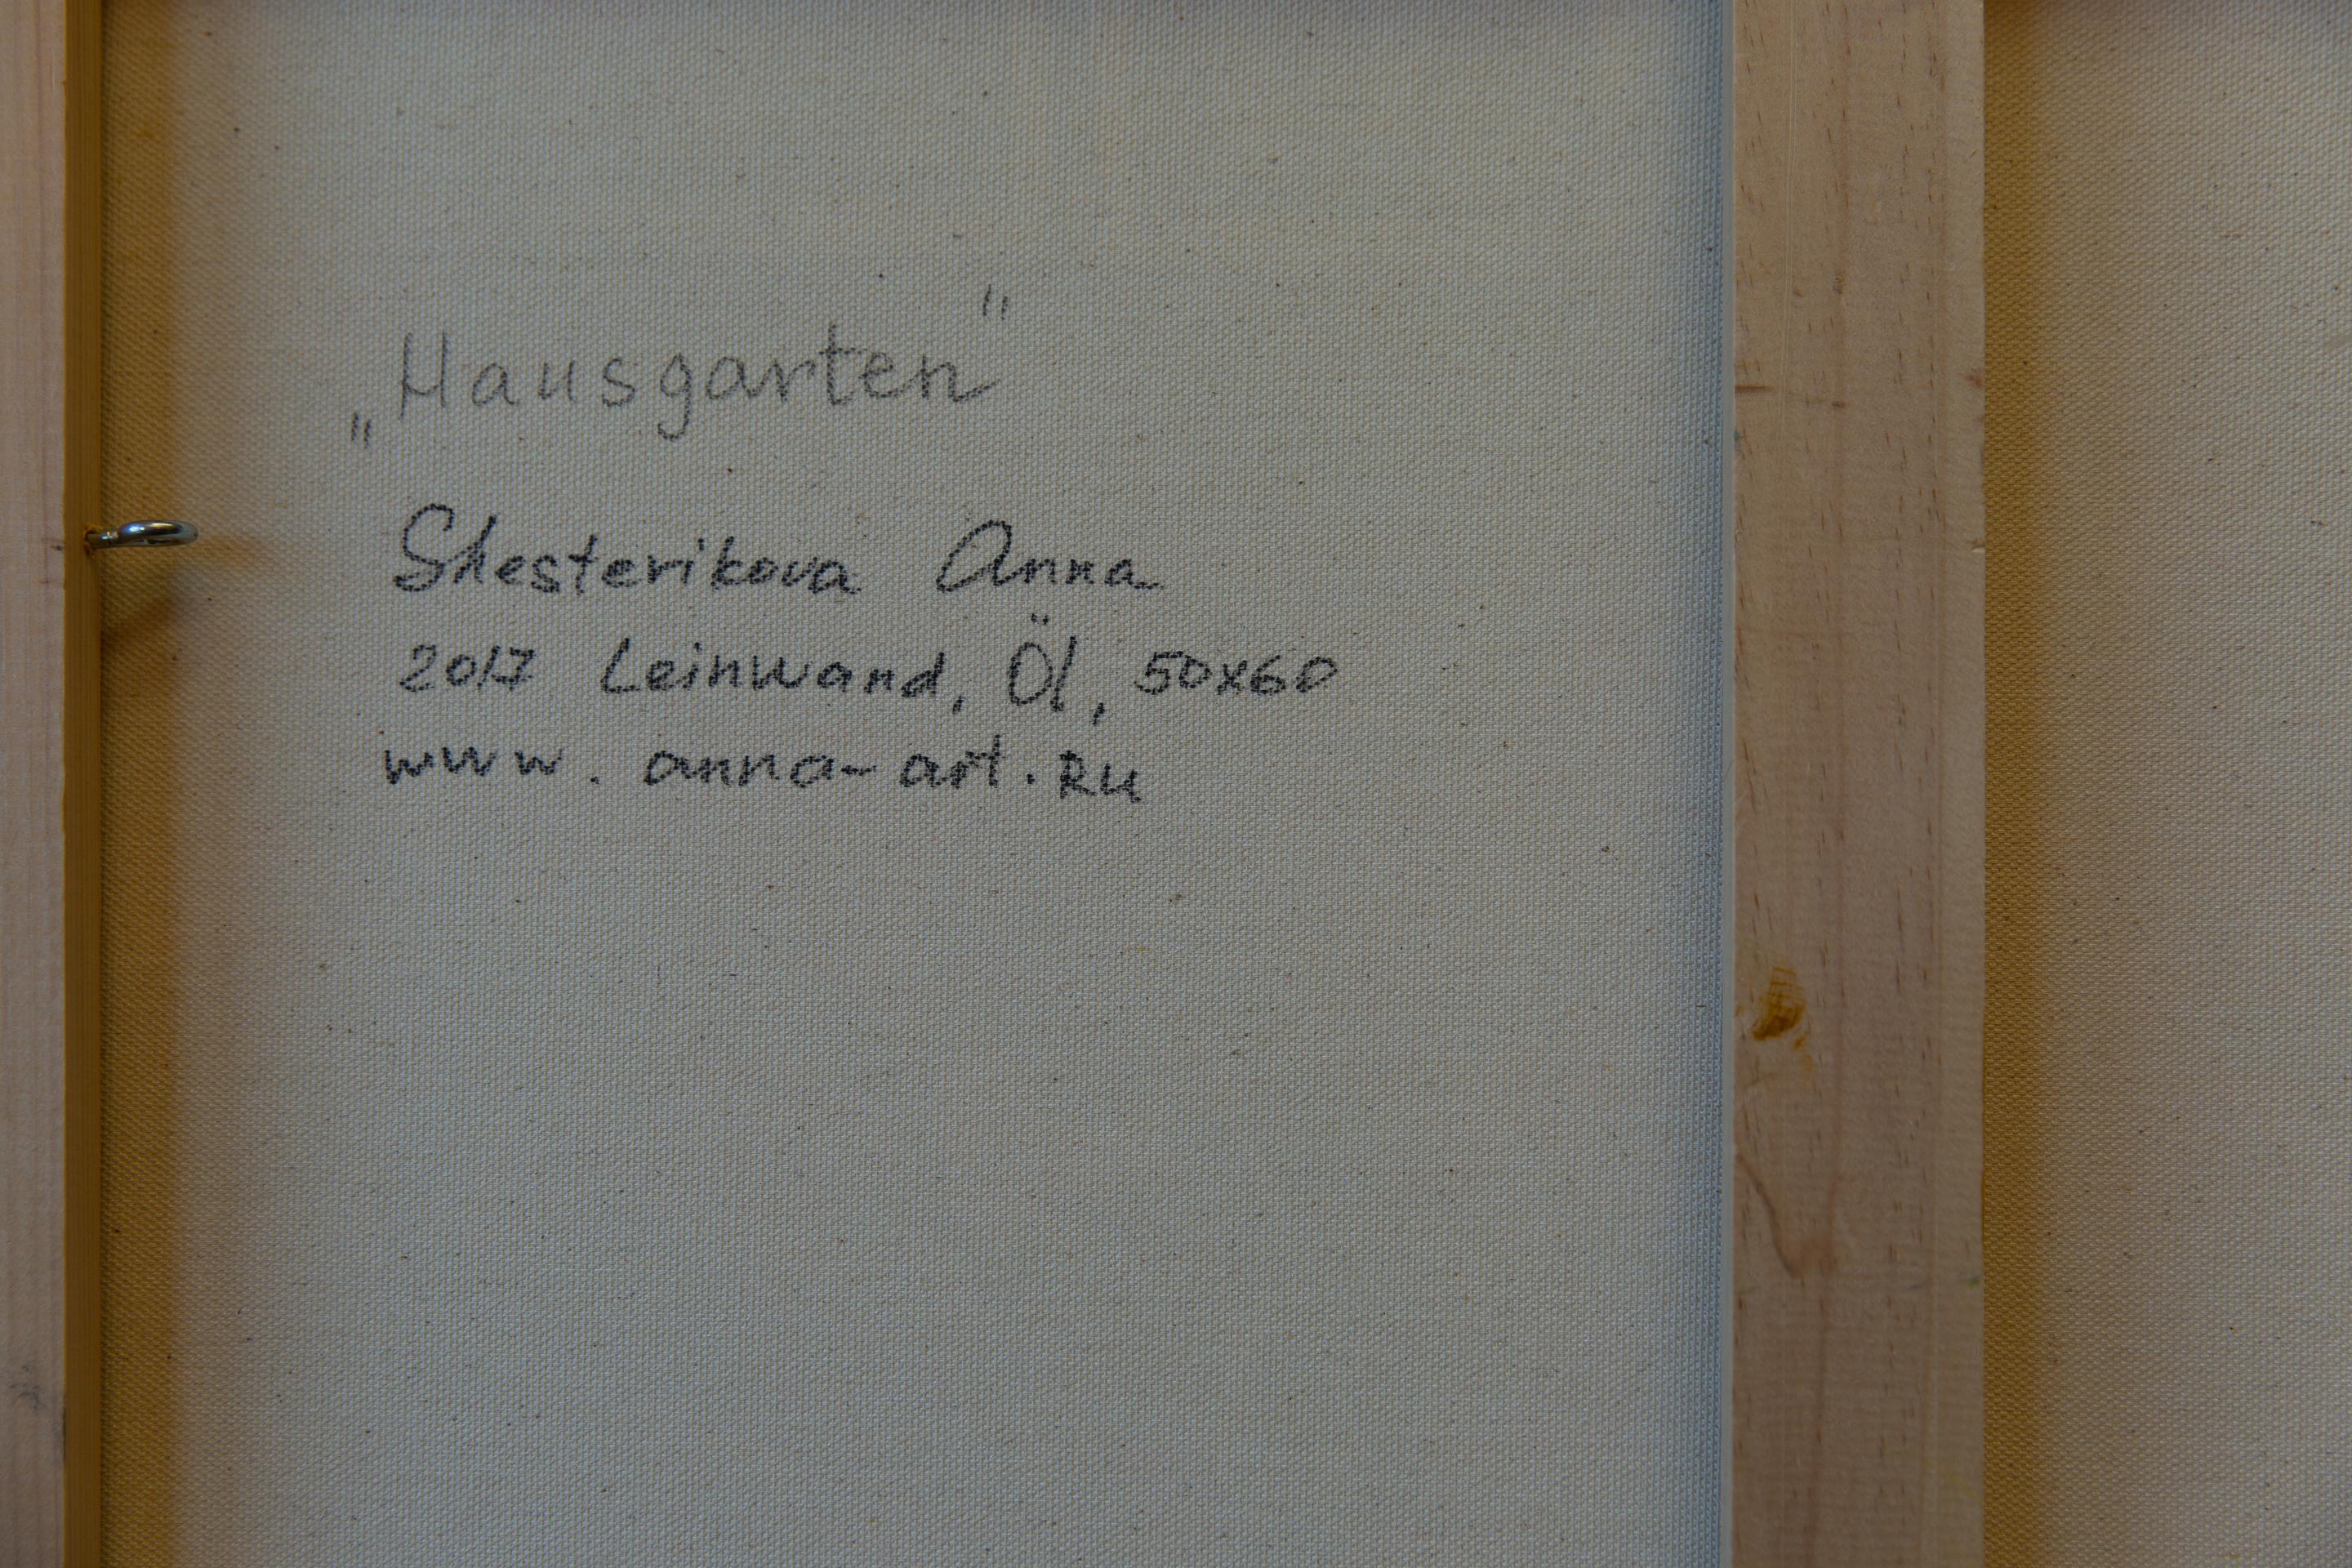 „Hausgarten"
Shesterikova Anna
2017 Leinwand, Öl, 50x60
www.anna-art.Ru